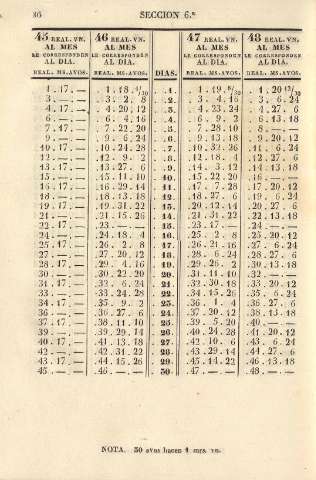 36 SECCION 6.ª
45 REAL. VN. 46 REAL. VN. 47 REAL. VN. 48 REAL. VN.
AL MES AL MES AL MES AL MES
LE CORRESPONDEN LE CORRESPONDEN LE CORRESPONDEN LE CORRESPONDEN
AL DIA. AL DIA. AL DIA. AL DIA.
REAL. MS. AVOS. REAL. MS. AVOS. DIAS. REAL. MS. AVOS. REAL. MS. AVOS.
1.17.— 1.18.4/30 1. 1.19.8/30 1.20 12/30
3.—.— 3.2.8 2. 3.4.16 3.6.24
4.17.— 4.20.12 3. 4.23.24 4.27.6
6.—.— 6.4.16 4. 6.9.2 6.13.18
7.17.— 7.22.20 5. 7.28.10 8.—.—
9.—.— 9.6.24 6. 9.13.18 9.20.12
10.17.— 10.24.28 7. 10.32.26 11.6.24
12.—.— 12.9.2 8. 12.18.4 12.27.6
13.17.— 13.27.6 9. 14.3.12 14.13.18
15.—.— 15.11.10 10. 15.22.20 16.—.—
16.17.— 16.29.14 11. 17.7.28 17.20.12
18.—.— 18.13.18 12. 18.27.6 19.6.24
19.17.— 19.31.22 13. 20.12.14 20.27.6
21.—.— 21.15.26 14. 21.31.22 22.13.18
22.17.— 23.—.— 15. 23.17.— 24.—.—
24.—.— 24.18.4 16. 25.2.8 25.20.12
25.17.— 26.2.8 17. 26.21.16 27.6.24
27.—.— 27.20.12 18. 28.6.24 28.27.6
28.17.— 29.4.16 19. 29.26.2 30.13.18
30.—.— 30.22.20 20. 31.11.10 32.—.—
31.17.— 32.6.24 21. 32.30.18 33.20.12
33.—.— 33.24.28 22. 34.15.26 35.6.24
34.17.— 35.9.2 23. 36.1.4 36.27.6
36.—.— 36.27.6 24. 37.20.12 38.13.18
37.17.— 38.11.10 25. 39.5.20 40.—.—
39.—.— 39.29.14 26. 40.24.28 41.20.12
40.17.— 41.13.18 27. 42.10.6 43.6.24
42.—.— 42.31.22 28. 43.29.14 44.27.6
43.17.— 44.15.26 29. 45.14.22 46.13.18
45.—.— 46.—.— 30. 47.—.— 48.—.—
NOTA. 30 avos hacen 1 mrs. vn.